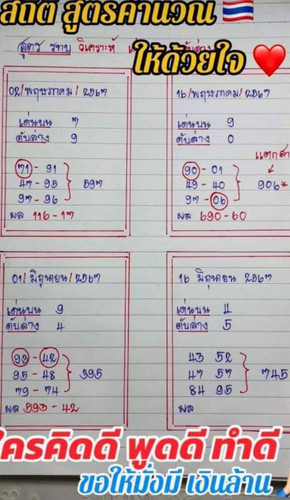 สถิติ สูตรคำนวณ
สูตร ธนบ วิเคราะห์ ล่าง
ให้ด้วยใจ
02/พฤษภาคม/2567
เด่นบน 7
ดับล่าง 9
71 - 91
47 - 95
97 - 96
597
ผล 116-17
16/พฤษภาคม/2567
เด่นบน 9
ดับล่าง 0
90 - 01
49 - 40
97 - 06
906*
ผล 690-60
01/มิถุนายน/2567
เด่นบน 9
ดับล่าง 4
92 - 42
95 - 48
79 - 74
395
ผล 593 - 42
16 มิถุนายน 2567
เด่นบน 4
ดับล่าง 5
43 52
47 57
84 95
745
ผล
ใครคิดดี พูดดี ทำดี
ขอให้มั่งมี เงินล้าน